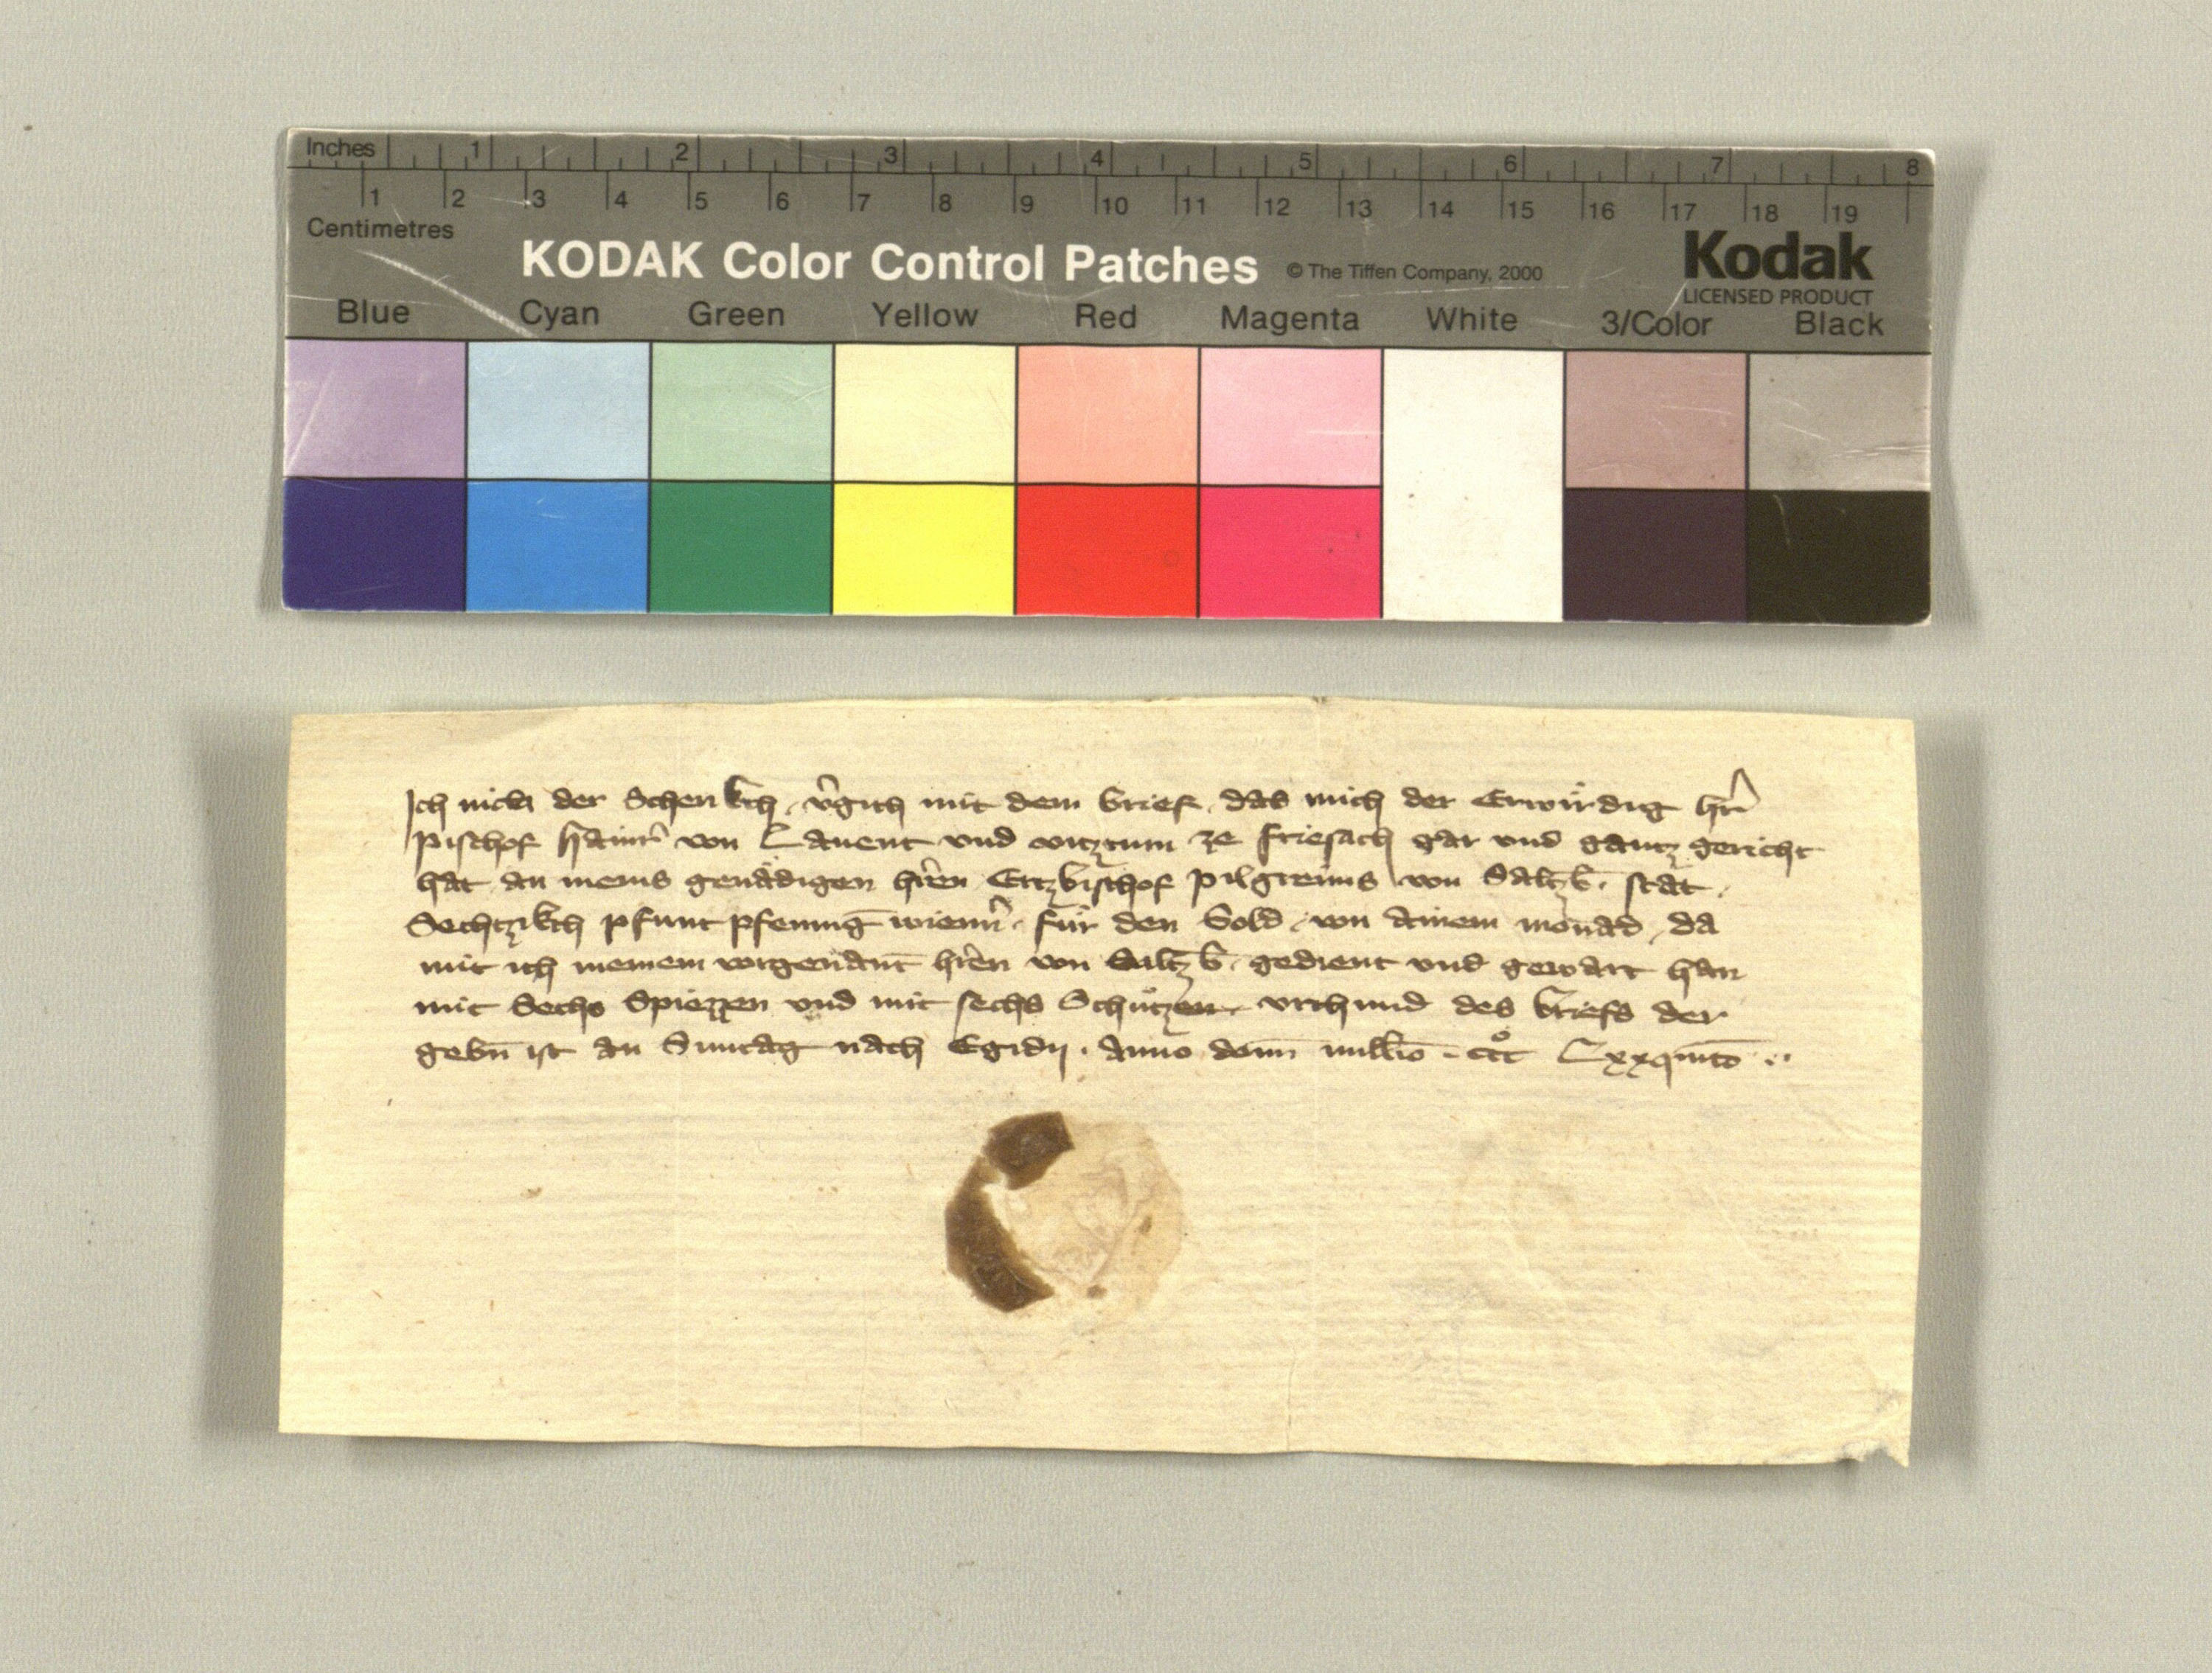 Inches 1 2 3 4 5 6 7 8
1 2 3 4 5 6 7 8 9 10 11 12 13 14 15 16 17 18 19
Centimetres
KODAK Color Control Patches © The Tiffen Company, 2000
Kodak
LICENSED PRODUCT
Blue Cyan Green Yellow Red Magenta White 3/Color Black
Ich nicla der Schenkch v̂gich mit dem brief das mich der Erwirdig hr̂
Pischof hainr̂ von Lauent vnd vitztum ze friesach gar vnd gantz gericht
hat an meins genädigen hr̂en Ertzbischof pilgreims von Saltzb̄. stat.
Sechtzikch pfunt pfenning̅ wienn̂. für den Sold von ainem monad, da
mit ich meinem vorgenant̄ hr̂en von Saltzb̄. gedient vnd gewart han
mit Sechs Spiezzen vnd mit sechs Schützen vrchund des briefs der
gebn̄ ist an Suntag nach Egidij. Anno domī millīo. ccc° Lxxquīto..